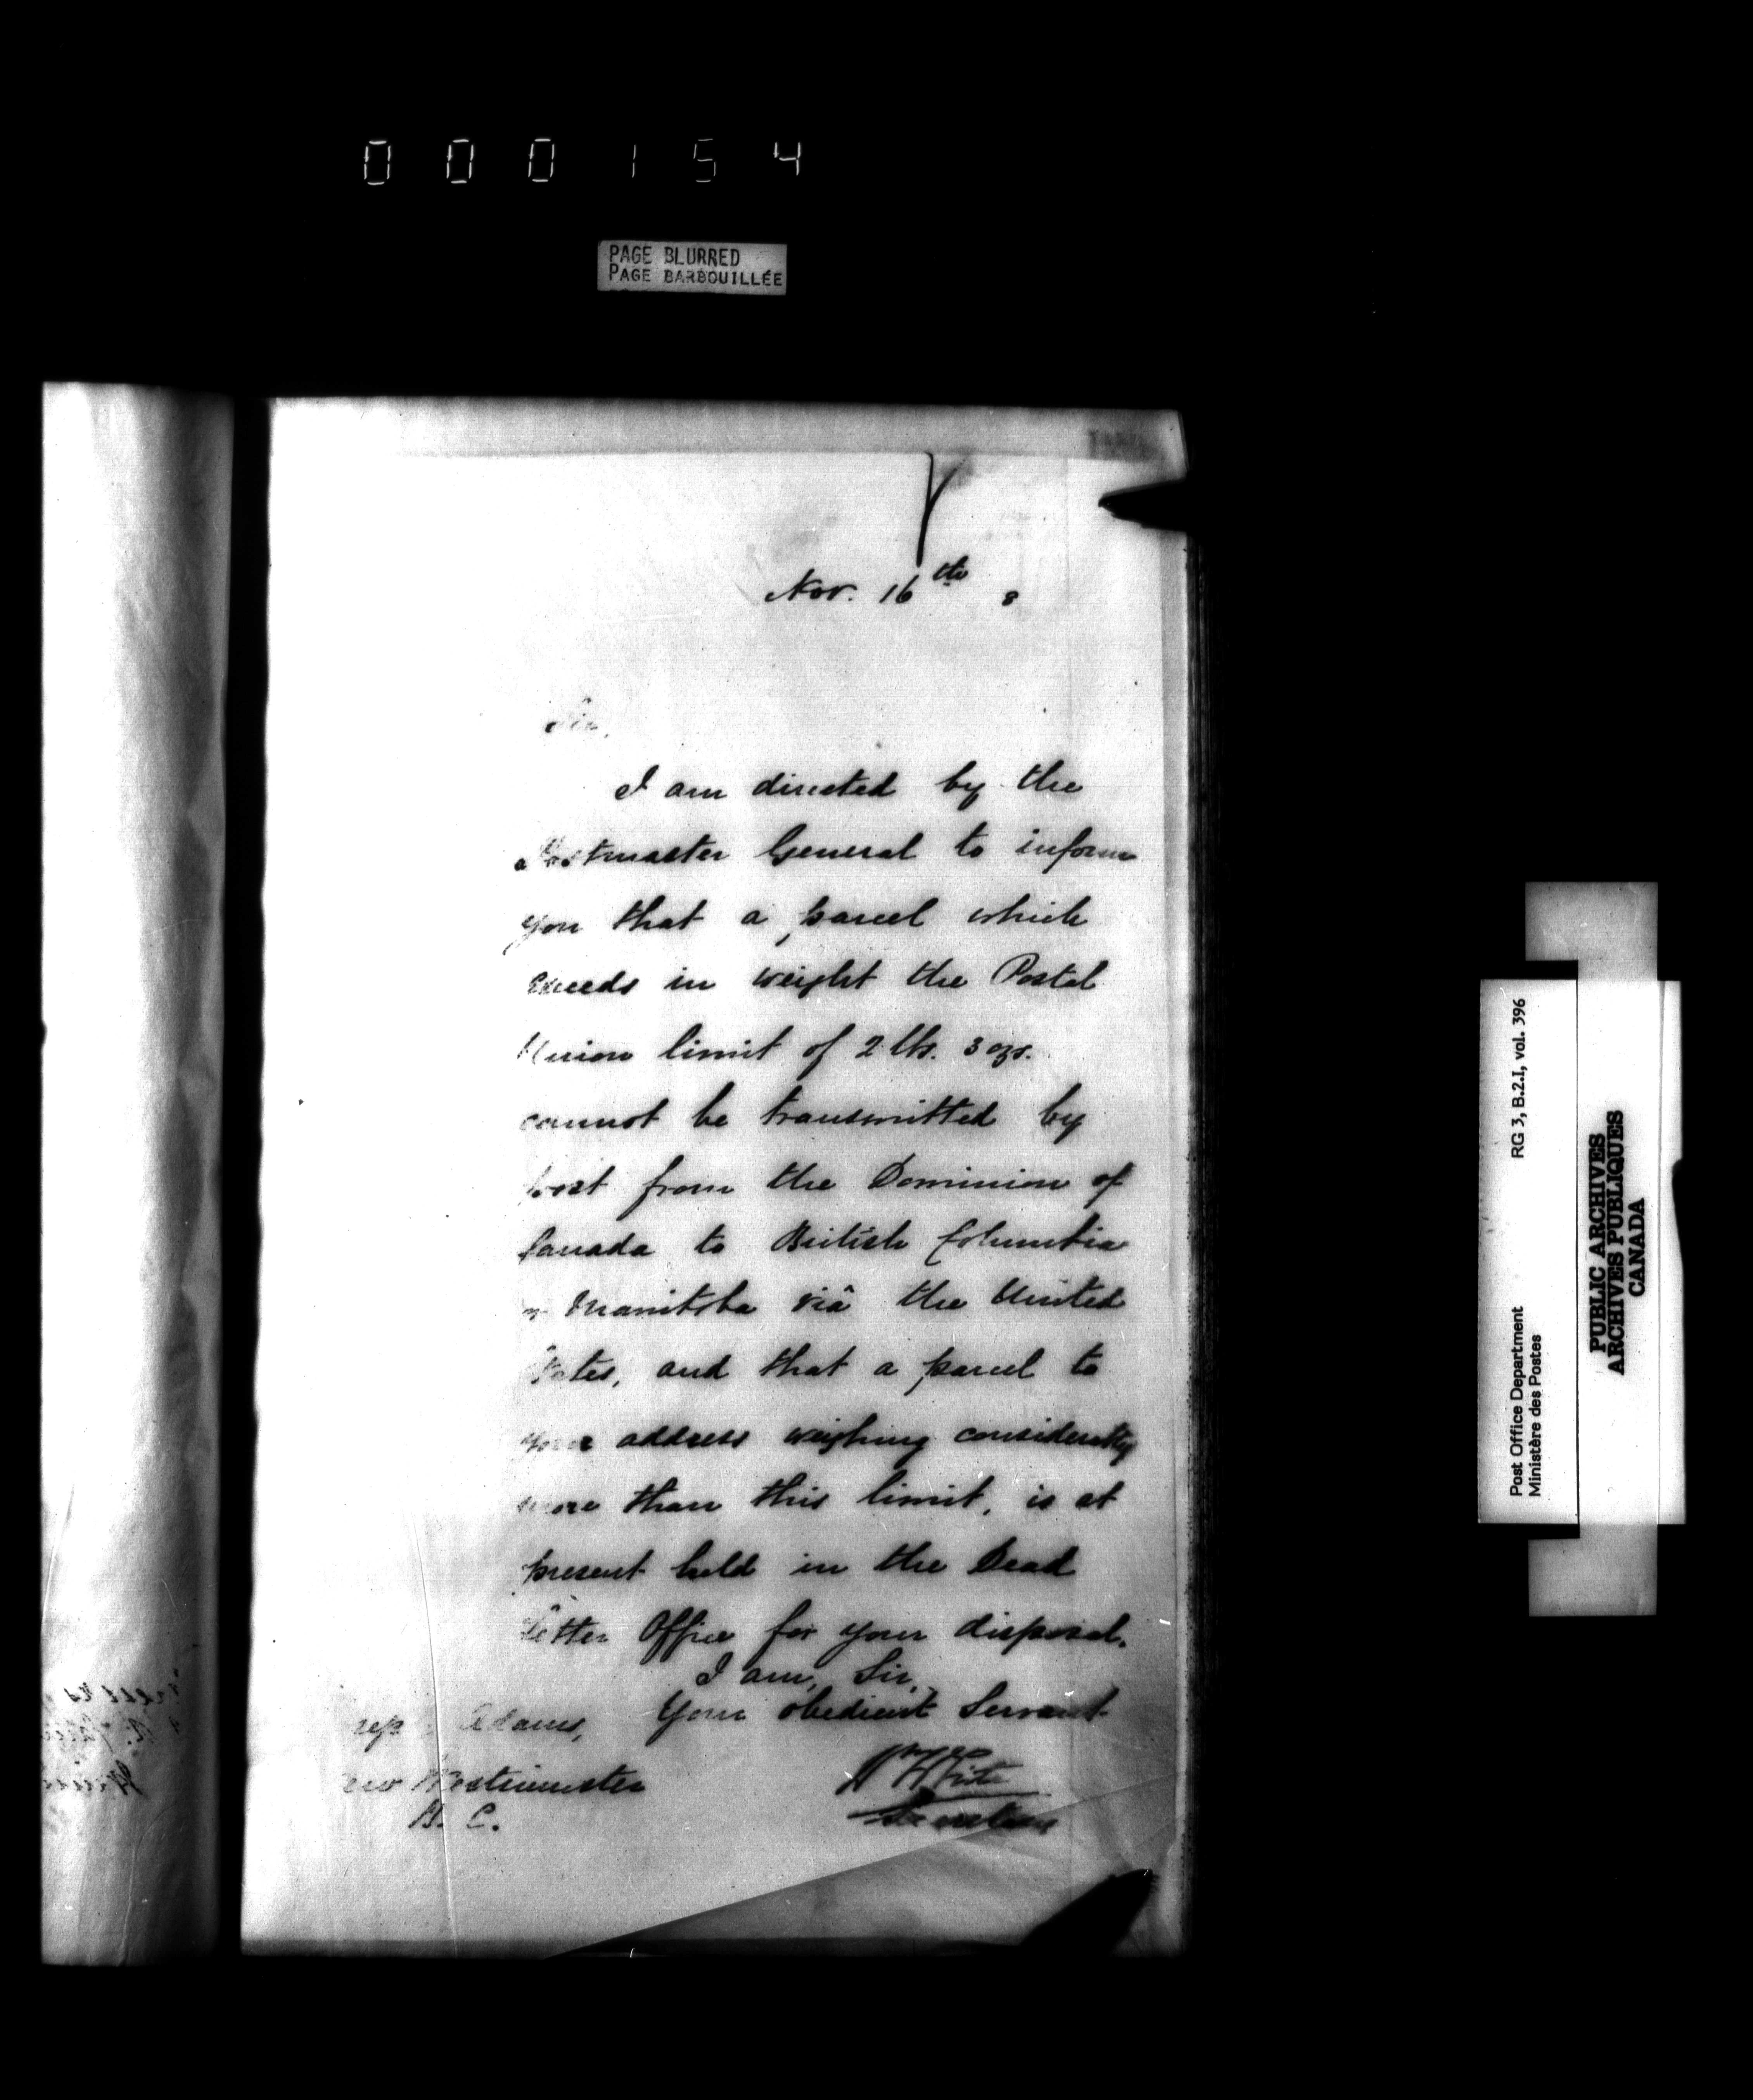 000154
PAGE BLURRED
PAGE BARBOUILLÉE
Nov. 16th 8
Sir,
I am directed by the
Postmaster General to inform
you that a parcel which
exceeds in weight the Postal
Union limit of 2 lbs. 3 ozs.
cannot be transmitted by
post from the Dominion of
Canada to British Columbia
or Manitoba viâ the United
States, and that a parcel to
your address weighing considerably
more than this limit, is at
present held in the Dead
Letter Office for your disposal.
I am, Sir,
Your obedient Servant
Adams,
New Westminster
B. C.
White
Secretary
Post Office Department RG 3, B.2.I, vol. 396
Ministère des Postes
PUBLIC ARCHIVES
ARCHIVES PUBLIQUES
CANADA